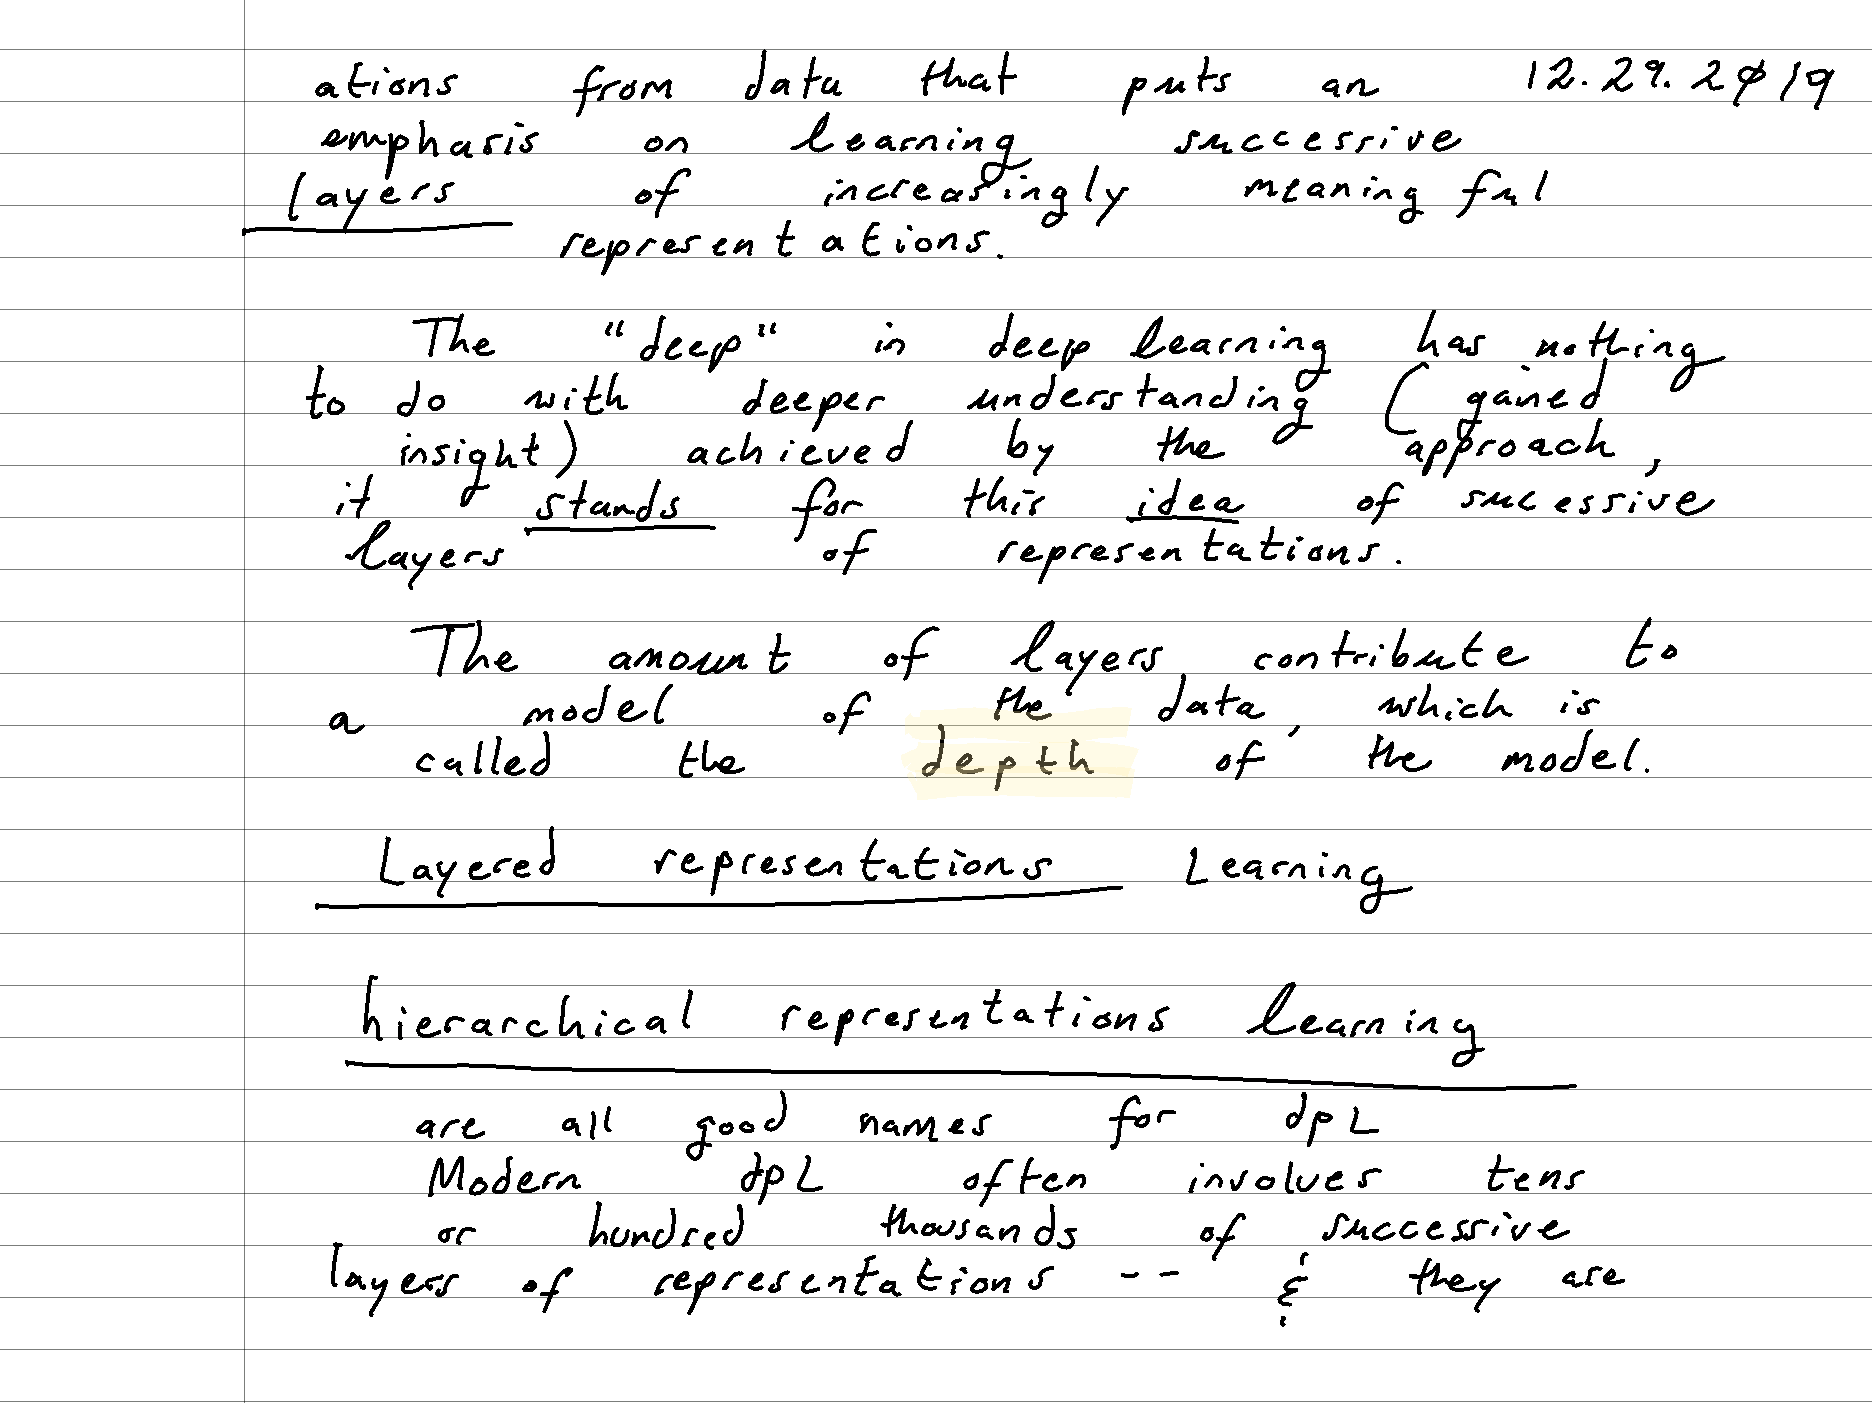 ations from data that puts an 12.29.2019
emphasis on learning successive
layers of increasingly meaningful
representations.
The "deep" in deep learning has nothing
to do with deeper understanding (gained
insight) achieved by the approach,
it stands for this idea of sucessive
layers of representations.
The amount of layers contribute to
a model of the data, which is
called the depth of the model.
Layered representations Learning
hierarchical representations learning
are all good names for dpL
Modern dpL often involves tens
or hundred thousands of successive
layers of representations -- & they are